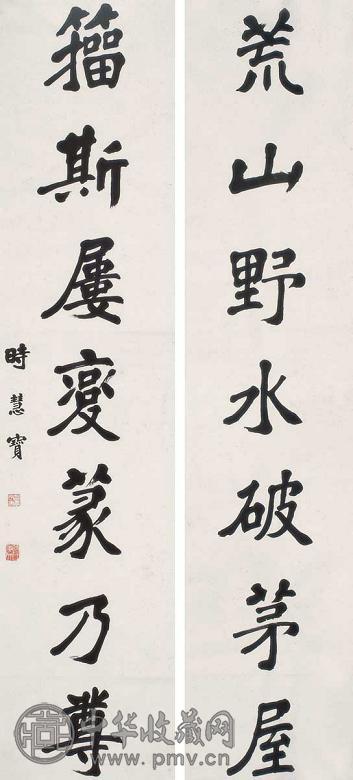 荒山野水破茅屋
籀斯屢變篆乃尊
時慧寶
中华收藏网
www.pmv.cn